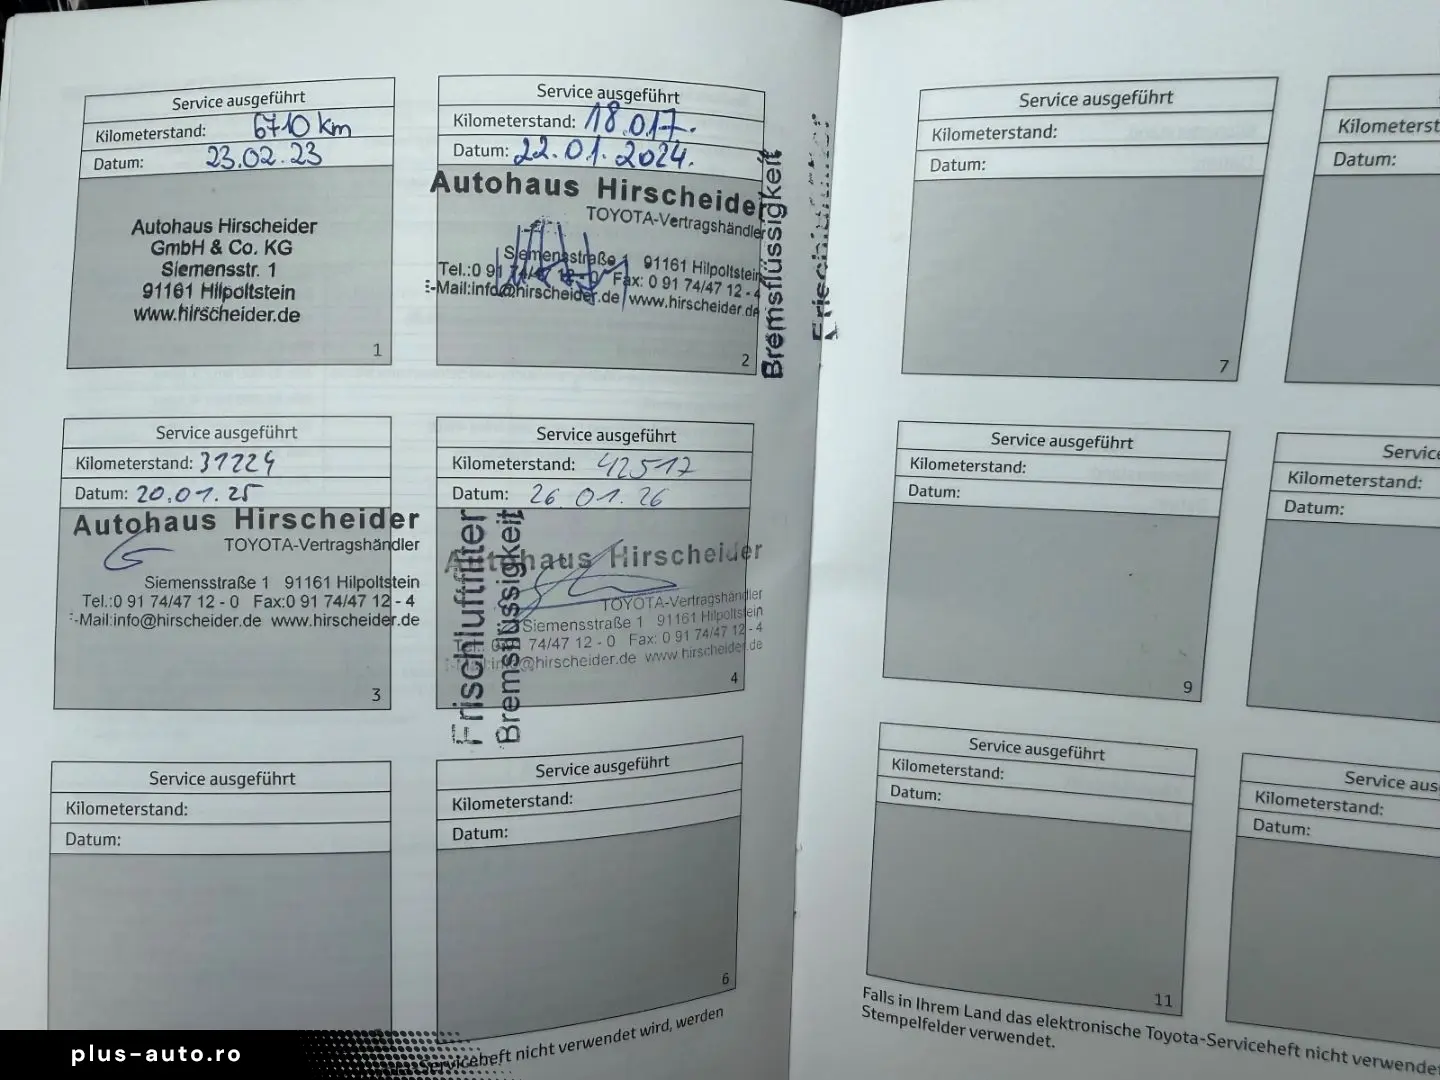 Service ausgeführt
Kilometerstand: 6710 km
Datum: 23.02.23
Autohaus Hirscheider
GmbH & Co. KG
Siemensstr. 1
91161 Hilpoltstein
www.hirscheider.de
1
Service ausgeführt
Kilometerstand: 18.017.
Datum: 22.01.2024.
Autohaus Hirscheider
TOYOTA-Vertragshändler
Siemensstraße 1 91161 Hilpoltstein
Tel.:0 91 74/47 12 - 0 Fax: 0 91 74/47 12 - 4
E-Mail:info@hirscheider.de www.hirscheider.de
2
Bremsflüssigkeit
Service ausgeführt
Kilometerstand: 31224
Datum: 20.01.25
Autohaus Hirscheider
TOYOTA-Vertragshändler
Siemensstraße 1 91161 Hilpoltstein
Tel.:0 91 74/47 12 - 0 Fax:0 91 74/47 12 - 4
-Mail:info@hirscheider.de www.hirscheider.de
3
Service ausgeführt
Kilometerstand: 42517
Datum: 26.01.26
Autohaus Hirscheider
TOYOTA-Vertragshändler
Siemensstraße 1 91161 Hilpoltstein
Tel.: 0 91 74/47 12 - 0 Fax: 0 91 74/47 12 - 4
-Mail:info@hirscheider.de www.hirscheider.de
4
Frischluftfilter
Bremsflüssigkeit
Service ausgeführt
Kilometerstand:
Datum:
Service ausgeführt
Kilometerstand:
Datum:
6
Serviceheft nicht verwendet wird, werden
Service ausgeführt
Kilometerstand:
Datum:
7
Kilometerst
Datum:
Service ausgeführt
Kilometerstand:
Datum:
9
Service
Kilometerstand:
Datum:
Service ausgeführt
Kilometerstand:
Datum:
11
Service aus
Kilometerstand:
Datum:
Falls in Ihrem Land das elektronische Toyota-Serviceheft nicht verwendet
Stempelfelder verwendet.
plus-auto.ro